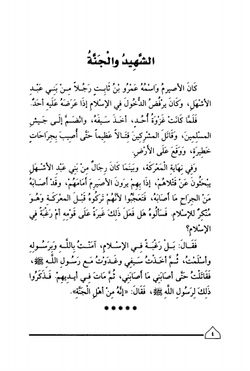 الشَّهِيدُ والْجَنَّةُ
كَانَ الأصيرمُ واسْمُهُ عَمْرُو بْنُ ثَابِتٍ رَجُلاً مِنْ بَنِي عَبْدِ
الأشْهَلِ، وكَانَ يرفُضُ الدُّخُولَ فِي الإسْلامِ إذَا عَرَضَهُ عَلَيهِ أحَدٌ.
فَلَمَّا كَانَتْ غَزْوَةُ أُحُدٍ، أخَذَ سَيفَهُ، وانْضَمَّ إلَى جَيشِ
المسلِمِينَ، وقَاتَلَ المشْرِكِينَ قِتَالاً عَظِيماً حَتَّى أُصِيبَ بِجِرَاحَاتٍ
خَطِيرَةٍ، ووَقَعَ عَلَى الأرْضِ.
وفِي نِهَايَةِ المَعْرَكَةِ، وبَينَمَا كَانَ رِجَالٌ مِنْ بَنِي عَبْدِ الأشْهَلِ
يبْحَثُونَ عَنْ قَتْلاهُمْ، إذَا بِهِمْ يرَونَ الأصيرمَ أمَامَهُمْ، وقَدْ أصَابَهُ
مِنَ الجِرَاحِ مَا أصَابَهُ، فَتَعَجَّبُوا لأنَّهُمْ تَرَكُوهُ قَبلَ المعْرَكَةِ وهُوَ
مُنْكِرٌ لِلإسْلامِ. فَسَألُوهُ هَلْ فَعَلَ ذَلِكَ غَيرَةً عَلَى قَومِهِ أمْ رَغْبَةً فِي
الإسْلامِ؟
فَقَالَ: بَلْ رَغْبَةً فِي الإسْلامِ، آمَنْتُ بِاللَّـهِ وبَرسُولِهِ
وأسْلَمْتُ، ثُمَّ أخَذْتُ سَيفِي وغَدَوتُ مَع رَسُولِ اللَّـهِ ﷺ،
فَقَاتَلْتُ حَتَّى أصَابَنِي مَا أصَابَنِي، ثُمَّ مَاتَ فِي أيدِيهِمْ. فَذَكَرُوا
ذَلِكَ لِرَسُولِ اللَّـهِ ﷺ، فَقَالَ: «إنَّهُ مِنْ أهْلِ الْجَنَّةِ».
٤